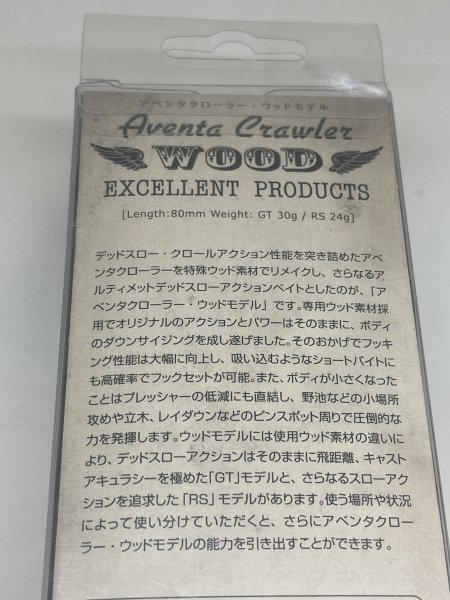 アベンタクローラー・ウッドモデル
Aventa Crawler
WOOD
EXCELLENT PRODUCTS
[Length:80mm Weight: GT 30g / RS 24g]
デッドスロー・クロールアクション性能を突き詰めたアベ
ンタクローラーを特殊ウッド素材でリメイクし、さらなるア
ルティメットデッドスローアクションベイトとしたのが、「ア
ベンタクローラー・ウッドモデル」です。専用ウッド素材採
用でオリジナルのアクションとパワーはそのままに、ボディ
のダウンサイジングを成し遂げました。そのおかげでフッキ
ング性能は大幅に向上し、吸い込むようなショートバイトに
も高確率でフックセットが可能。また、ボディが小さくなった
ことはプレッシャーの低減にも直結し、野池などの小場所
攻めや立木、レイダウンなどのピンスポット周りで圧倒的な
力を発揮します。ウッドモデルには使用ウッド素材の違いに
より、デッドスローアクションはそのままに飛距離、キャスト
アキュラシーを極めた「GT」モデルと、さらなるスローアク
ションを追求した「RS」モデルがあります。使う場所や状況
によって使い分けていただくと、さらにアベンタクロー
ラー・ウッドモデルの能力を引き出すことができます。